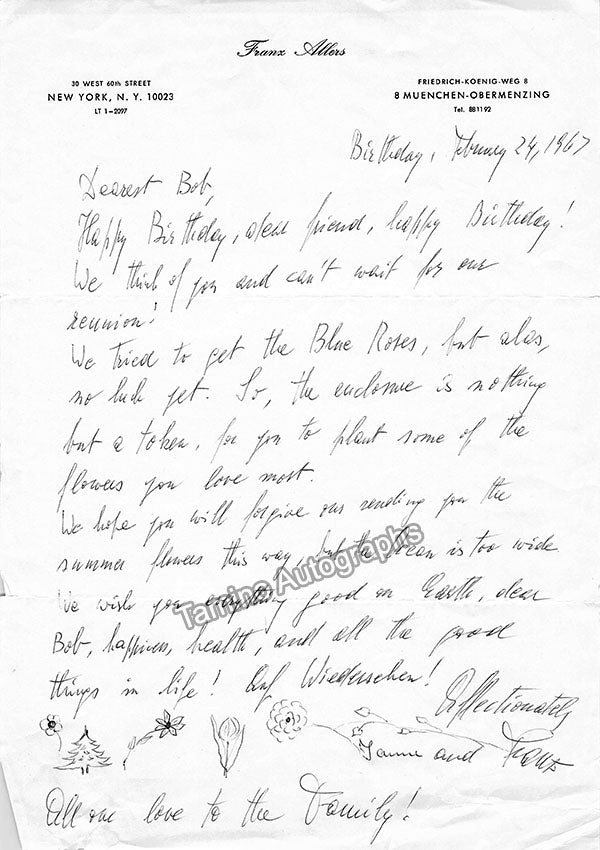 Franz Allers
30 WEST 60th STREET
NEW YORK, N. Y. 10023
LT 1-2097
FRIEDRICH-KOENIG-WEG 8
8 MUENCHEN-OBERMENZING
Tel. 881192
Birthday, February 24, 1967
Dearest Bob,
Happy Birthday, dear friend, happy Birthday!
We think of you and can't wait for our
reunion!
We tried to get the Blue Roses, but alas,
no luck yet. So, the enclosure is nothing
but a token, for you to plant some of the
flowers you love most.
We hope you will forgive our sending you the
summer flowers this way, but the Ocean is too wide
We wish you everything good on Earth, dear
Bob, happiness, health, and all the good
things in life! Auf Wiedersehen!
Affectionately
Janne and Franz
All our love to the Family!
Tamino Autographs